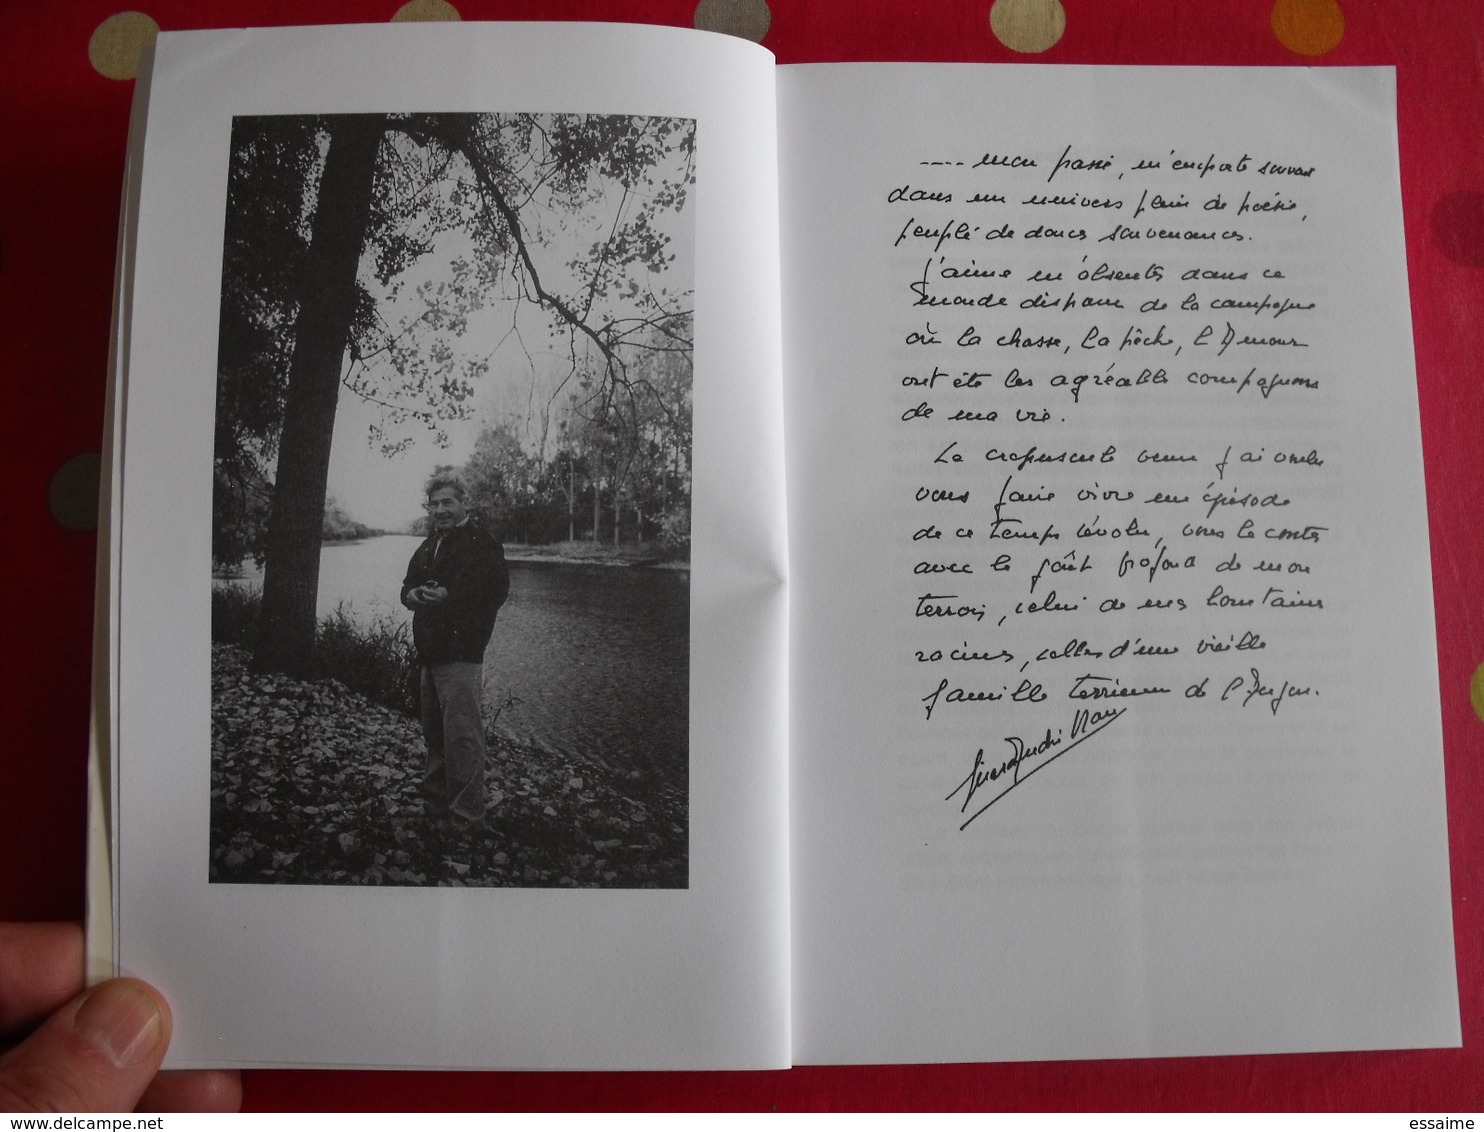 ---- mon passé, m'emporte souvent
dans un univers plein de poésie,
peuplé de douces souvenances.
J'aime m'absenter dans ce
monde disparu de la campagne
où la chasse, la pêche, l'Amour
ont été les agréables compagnons
de ma vie.
Le crépuscule venu j'ai voulu
vous faire vivre un épisode
de ce temps révolu, vous le conter
avec le goût profond de mon
terroir, celui de mes lointaines
racines, celles d'une vieille
famille terrienne de l'Anjou.
Gérard André
essaime